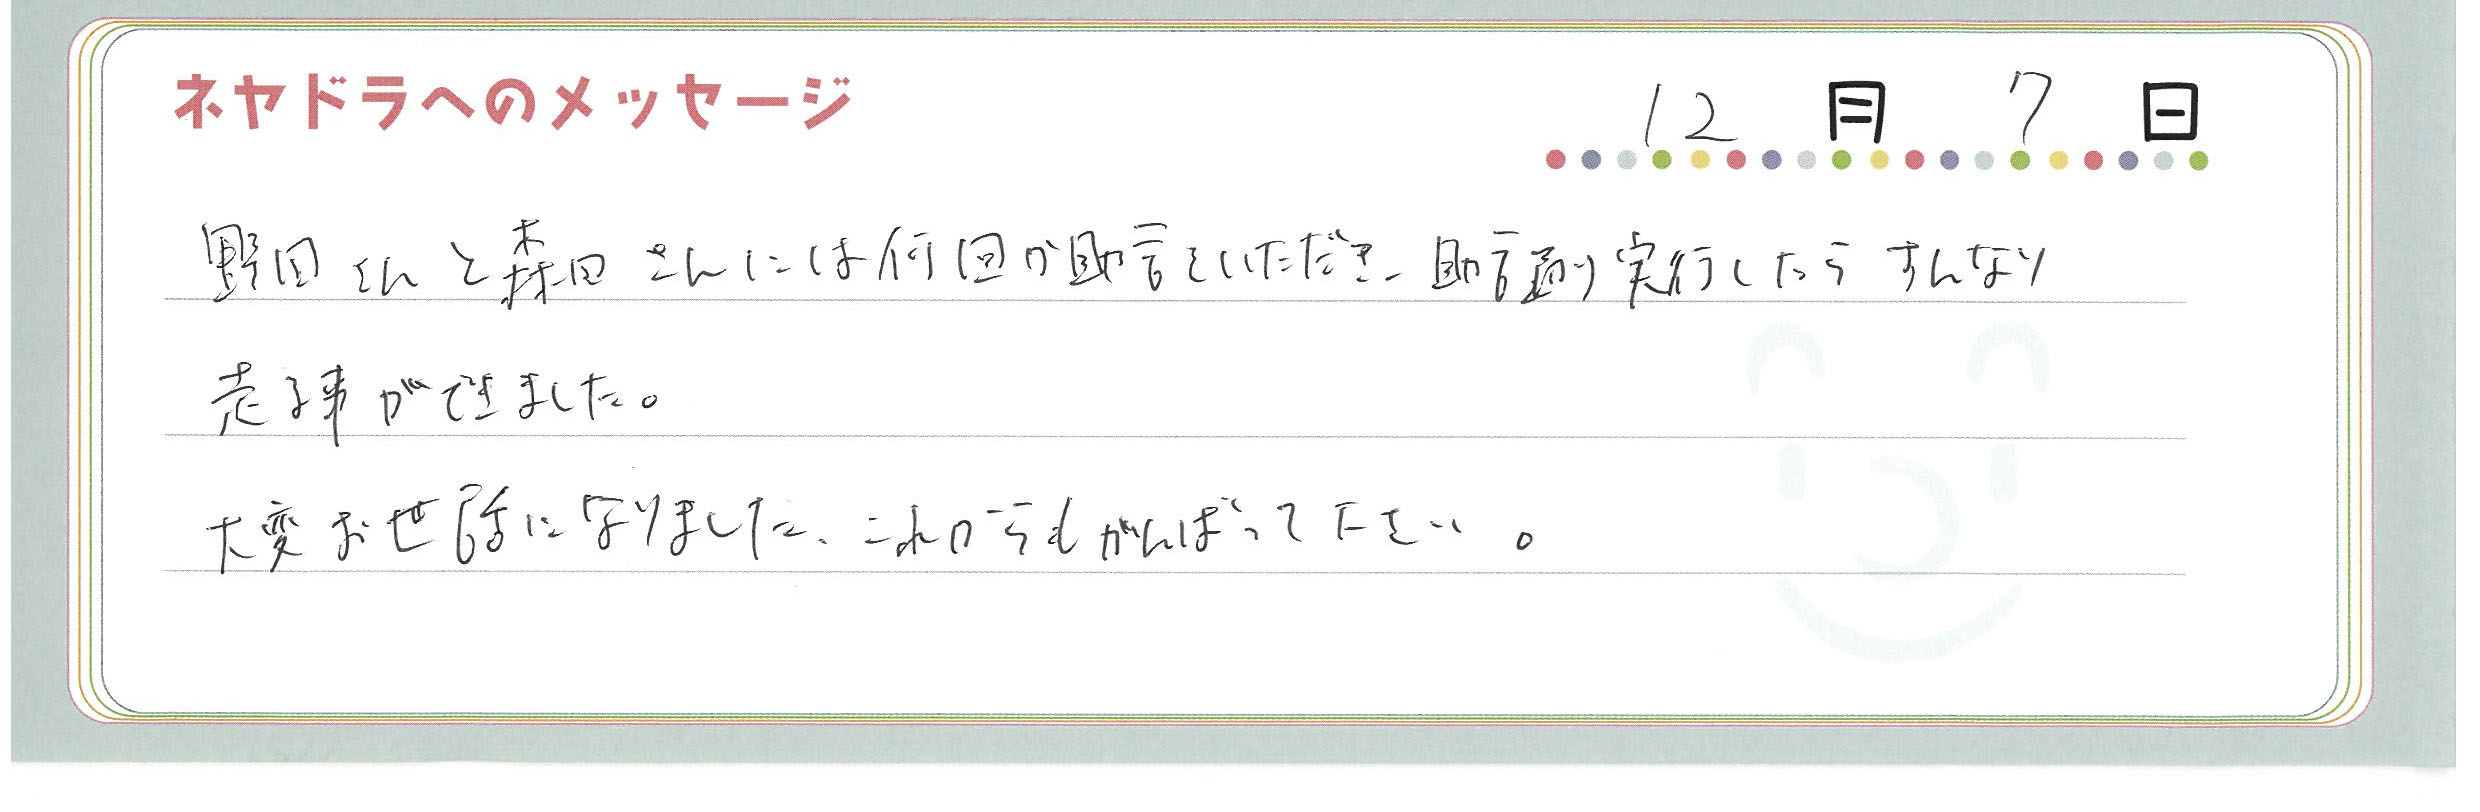 ネヤドラへのメッセージ
12月7日
野田さんと森田さんには何回か助言をいただき、助言通り実行したらすんなり
走る事ができました。
大変お世話になりました、これからもがんばって下さい。